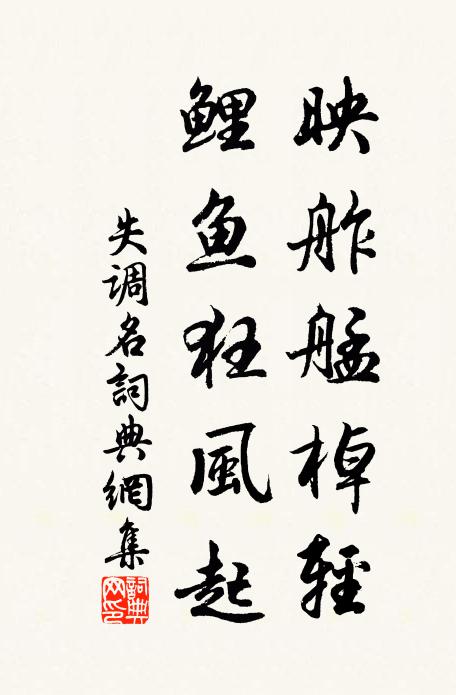 映舴艋棹輕
鯉魚狂風起
失调名詞典網集
詞典网印